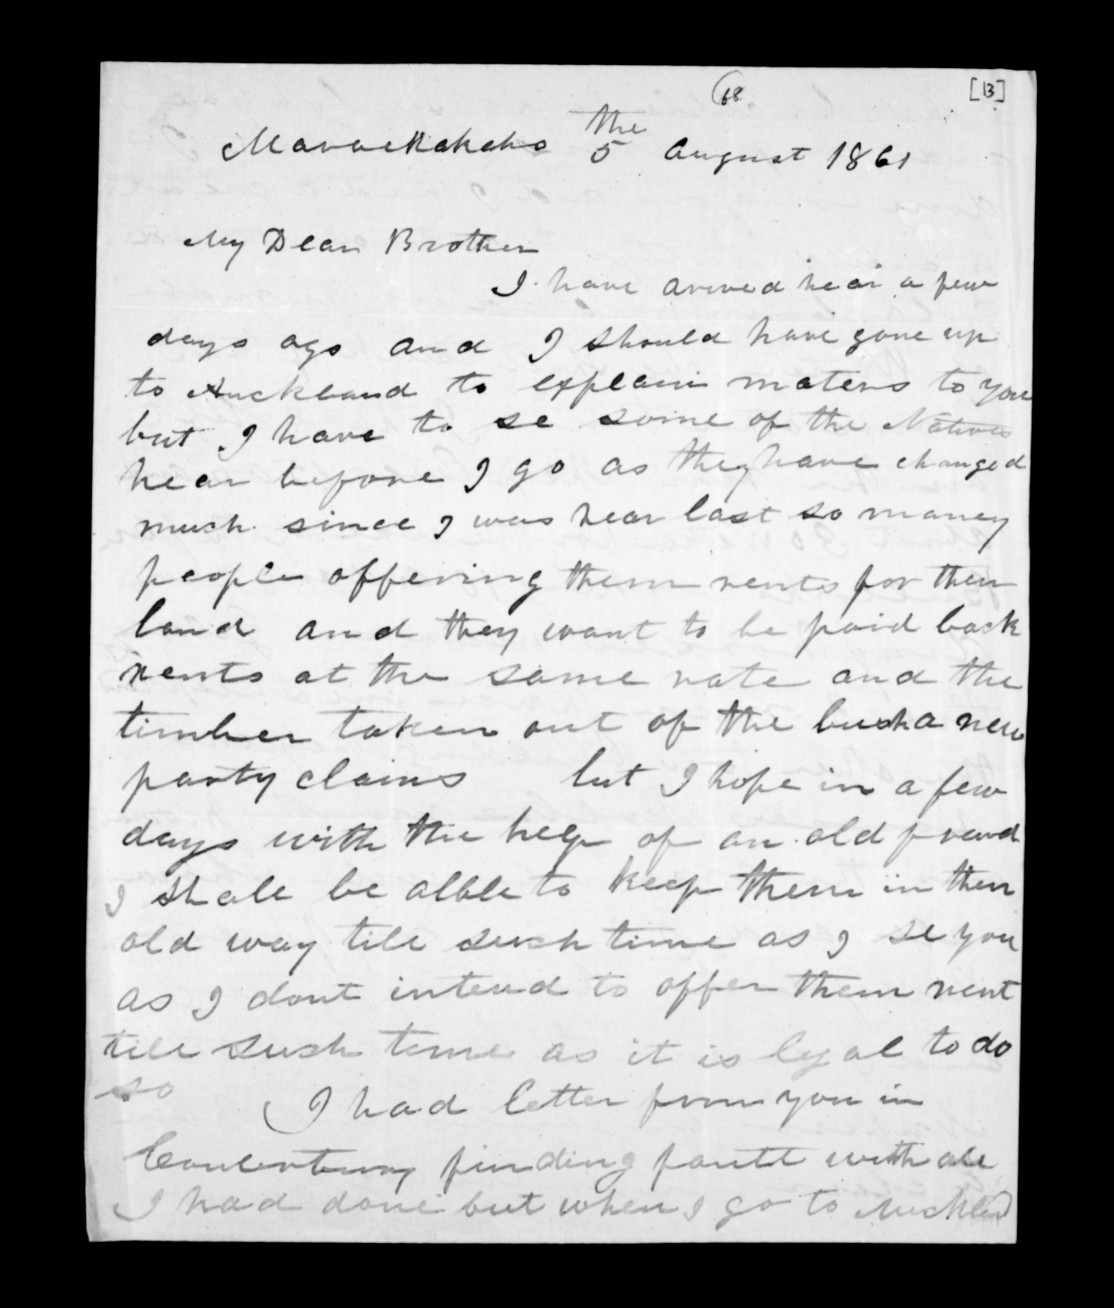 68
[13]
the
5 August 1861
My Dear Brother
I have arived hear a few
days ago and I should have gone up
to Auckland to explain maters to you
but I have to se some of the Natives
hear before I go as they have changed
much since I was hear last so maney
people offering them rents for their
land and they want to be paid back
rents at the same rate and the
timber taken out of the bush a new
party claims but I hope in a few
days with the help of an old freand
I shall be alble to keep them in their
old way till such time as I se you
as I dont intend to offer them rent
till such time as it is legal to do
so
I had letter from you in
finding fault with all
I had done but when I go to Auckland